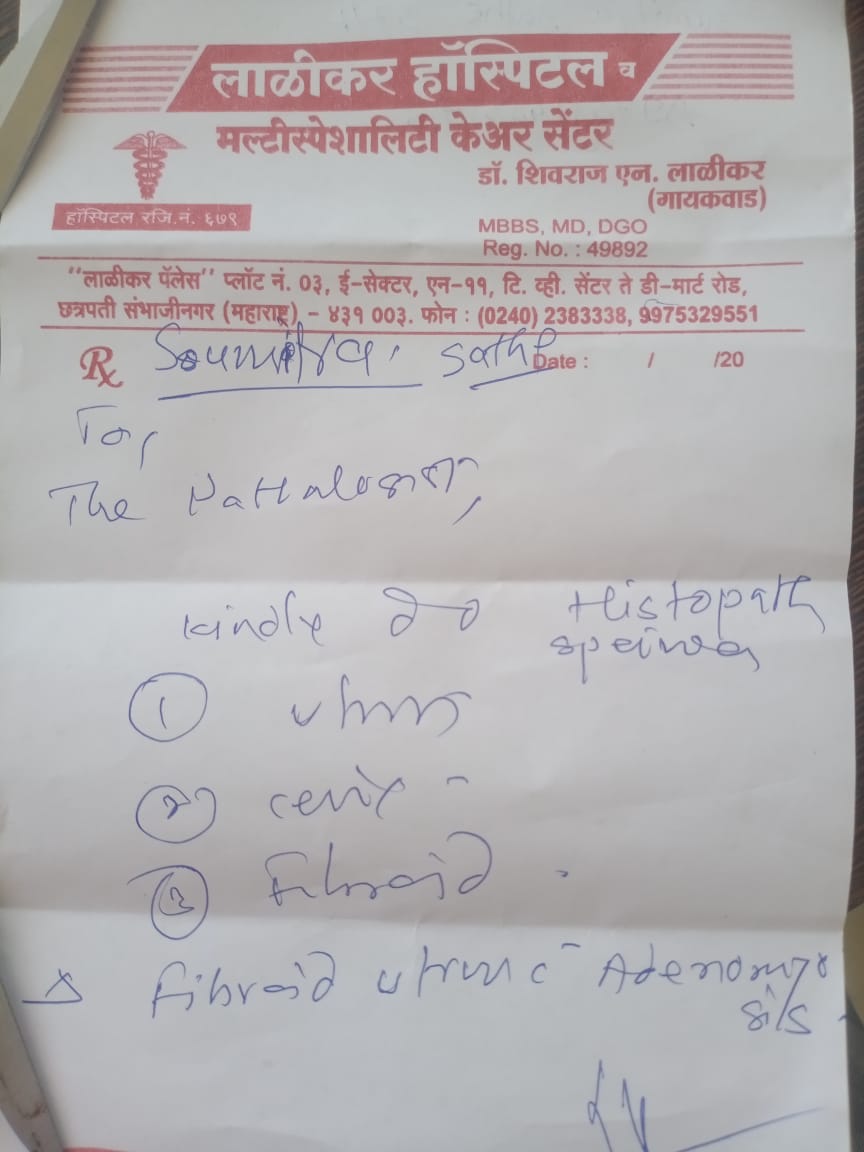 लाळीकर हॉस्पिटल व
मल्टीस्पेशालिटी केअर सेंटर
डॉ. शिवराज एन. लाळीकर
(गायकवाड)
हॉस्पिटल रजि.नं. ६७९
MBBS, MD, DGO
Reg. No. : 49892
"लाळीकर पॅलेस" प्लॉट नं. ०३, ई-सेक्टर, एन-११, टि. व्ही. सेंटर ते डी-मार्ट रोड,
छत्रपती संभाजीनगर (महाराष्ट्र) - ४३१ ००३. फोन : (0240) 2383338, 9975329551
Rx Soumitra. Sathe Date : / /20
To,
The
kindly do Histopath
① uterus
② cervix
③ Fibroid
Δ Fibroid uterus c̄ Adenomyo
sis